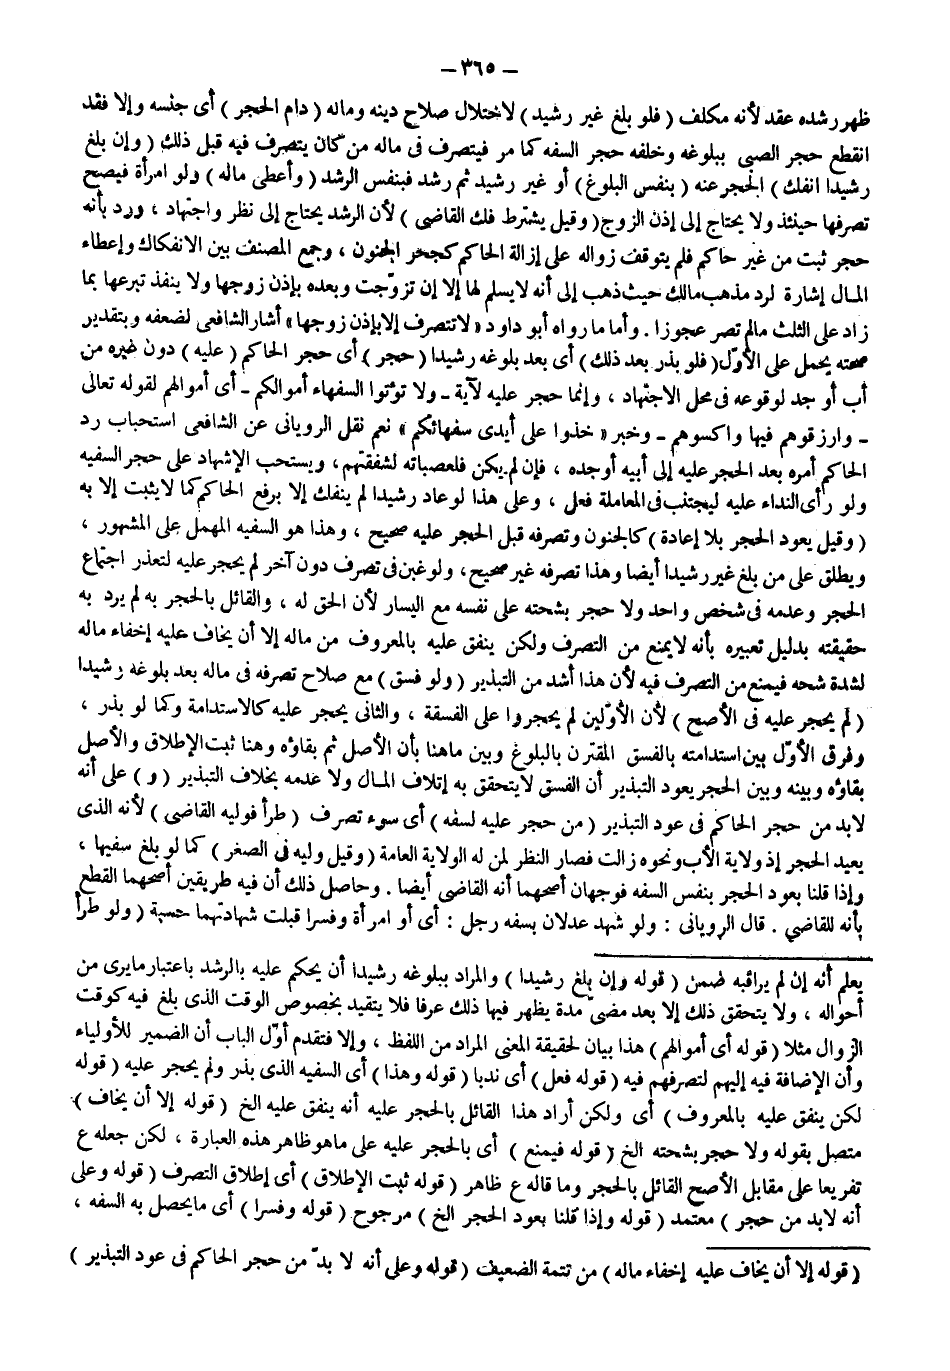 – ٣٦٥ –
ظهر رشده عقد لأنه مكلف ( فلو بلغ غير رشيد ) لاختلال صلاح دينه وماله ( دام الحجر ) أى جنسه وإلا فقد
انقطع حجر الصبى ببلوغه وخلفه حجر السفه كما مر فيتصرف فى ماله من كان يتصرف فيه قبل ذلك ( وإن بلغ
رشيدا انفك ) الحجر عنه ( بنفس البلوغ ) أو غير رشيد ثم رشد فبنفس الرشد ( وأعطى ماله ) ولو امرأة فيصح
تصرفها حينئذ ولا يحتاج إلى إذن الزوج ( وقيل يشترط فك القاضى ) لأن الرشد يحتاج إلى نظر واجتهاد ، ورد بأنه
حجر ثبت من غير حاكم فلم يتوقف زواله على إزالة الحاكم كحجر الجنون ، وجمع المصنف بين الانفكاك وإعطاء
المال إشارة لرد مذهب مالك حيث ذهب إلى أنه لايسلم لها إلا إن تزوّجت وبعده بإذن زوجها ولا ينفذ تبرعها بما
زاد على الثلث مالم تصر عجوزا . وأما ما رواه أبو داود « لاتتصرف إلا بإذن زوجها » أشار الشافعى لضعفه وبتقدير
صحته يحمل على الأوّل ( فلو بذر بعد ذلك ) أى بعد بلوغه رشيدا ( حجر ) أى حجر الحاكم ( عليه ) دون غيره من
أب أو جد لوقوعه فى محل الاجتهاد ، وإنما حجر عليه لآية ـ ولا تؤتوا السفهاء أموالكم ـ أى أموالهم لقوله تعالى
ـ وارزقوهم فيها واكسوهم ـ وخبر « خذوا على أيدى سفهائكم » نعم نقل الرويانى عن الشافعى استحباب رد
الحاكم أمره بعد الحجر عليه إلى أبيه أوجده ، فإن لم يكن فلعصباته لشفقتهم ، ويستحب الإشهاد على حجر السفيه
ولو رأى النداء عليه ليجتنب فى المعاملة فعل ، وعلى هذا لو عاد رشيدا لم ينفك إلا برفع الحاكم كما لايثبت إلا به
( وقيل يعود الحجر بلا إعادة ) كالجنون وتصرفه قبل الحجر عليه صحيح ، وهذا هو السفيه المهمل على المشهور ،
ويطلق على من بلغ غير رشيد أيضا وهذا تصرفه غير صحيح ، ولو غبن فى تصرف دون آخر لم يحجر عليه لتعذر اجتماع
الحجر وعدمه فى شخص واحد ولا حجر بشحته على نفسه مع اليسار لأن الحق له ، والقائل بالحجر به لم يرد به
حقيقته بدليل تعبيره بأنه لايمنع من التصرف ولكن ينفق عليه بالمعروف من ماله إلا أن يخاف عليه إخفاء ماله
لشدة شحه فيمنع من التصرف فيه لأن هذا أشد من التبذير ( ولو فسق ) مع صلاح تصرفه فى ماله بعد بلوغه رشيدا
( لم يحجر عليه فى الأصح ) لأن الأوّلين لم يحجروا على الفسقة ، والثانى يحجر عليه كالاستدامة وكما لو بذر ،
وفرق الأوّل بين استدامته بالفسق المقترن بالبلوغ وبين ماهنا بأن الأصل ثم بقاؤه وهنا ثبت الإطلاق والأصل
بقاؤه وبينه وبين الحجر بعود التبذير أن الفسق لايتحقق به إتلاف المال ولا عدمه بخلاف التبذير ( و ) على أنه
لابد من حجر الحاكم فى عود التبذير ( من حجر عليه لسفه ) أى سوء تصرف ( طرأ فوليه القاضى ) لأنه الذى
يعيد الحجر إذ ولاية الأب ونحوه زالت فصار النظر لمن له الولاية العامة ( وقيل وليه فى الصغر ) كما لو بلغ سفيها ،
وإذا قلنا بعود الحجر بنفس السفه فوجهان أصحهما أنه القاضى أيضا . وحاصل ذلك أن فيه طريقين أصحهما القطع
بأنه للقاضي . قال الرويانى : ولو شهد عدلان بسفه رجل : أى أو امرأة وفسرا قبلت شهادتهما حسبة ( ولو طرأ
يعلم أنه إن لم يراقبه ضمن ( قوله وإن بلغ رشيدا ) والمراد ببلوغه رشيدا أن يحكم عليه بالرشد باعتبار مايرى من
أحواله ، ولا يتحقق ذلك إلا بعد مضىّ مدة يظهر فيها ذلك عرفا فلا يتقيد بخصوص الوقت الذى بلغ فيه كوقت
الزوال مثلا ( قوله أى أموالهم ) هذا بيان لحقيقة المعنى المراد من اللفظ ، وإلا فتقدم أوّل الباب أن الضمير للأولياء
وأن الإضافة فيه إليهم لتصرفهم فيه ( قوله فعل ) أى ندبا ( قوله وهذا ) أى السفيه الذى بذر ولم يحجر عليه ( قوله
لكن ينفق عليه بالمعروف ) أى ولكن أراد هذا القائل بالحجر عليه أنه ينفق عليه الخ ( قوله إلا أن يخاف )
متصل بقوله ولا حجر بشحته الخ ( قوله فيمنع ) أى بالحجر عليه على ماهو ظاهر هذه العبارة ، لكن جعله ع
تفريعا على مقابل الأصح القائل بالحجر وما قاله ع ظاهر ( قوله ثبت الإطلاق ) أى إطلاق التصرف ( قوله وعلى
أنه لابد من حجر ) معتمد ( قوله وإذا قلنا بعود الحجر الخ ) مرجوح ( قوله وفسرا ) أى مايحصل به السفه ،
( قوله إلا أن يخاف عليه إخفاء ماله ) من تتمة الضعيف ( قوله وعلى أنه لا بدّ من حجر الحاكم فى عود التبذير )